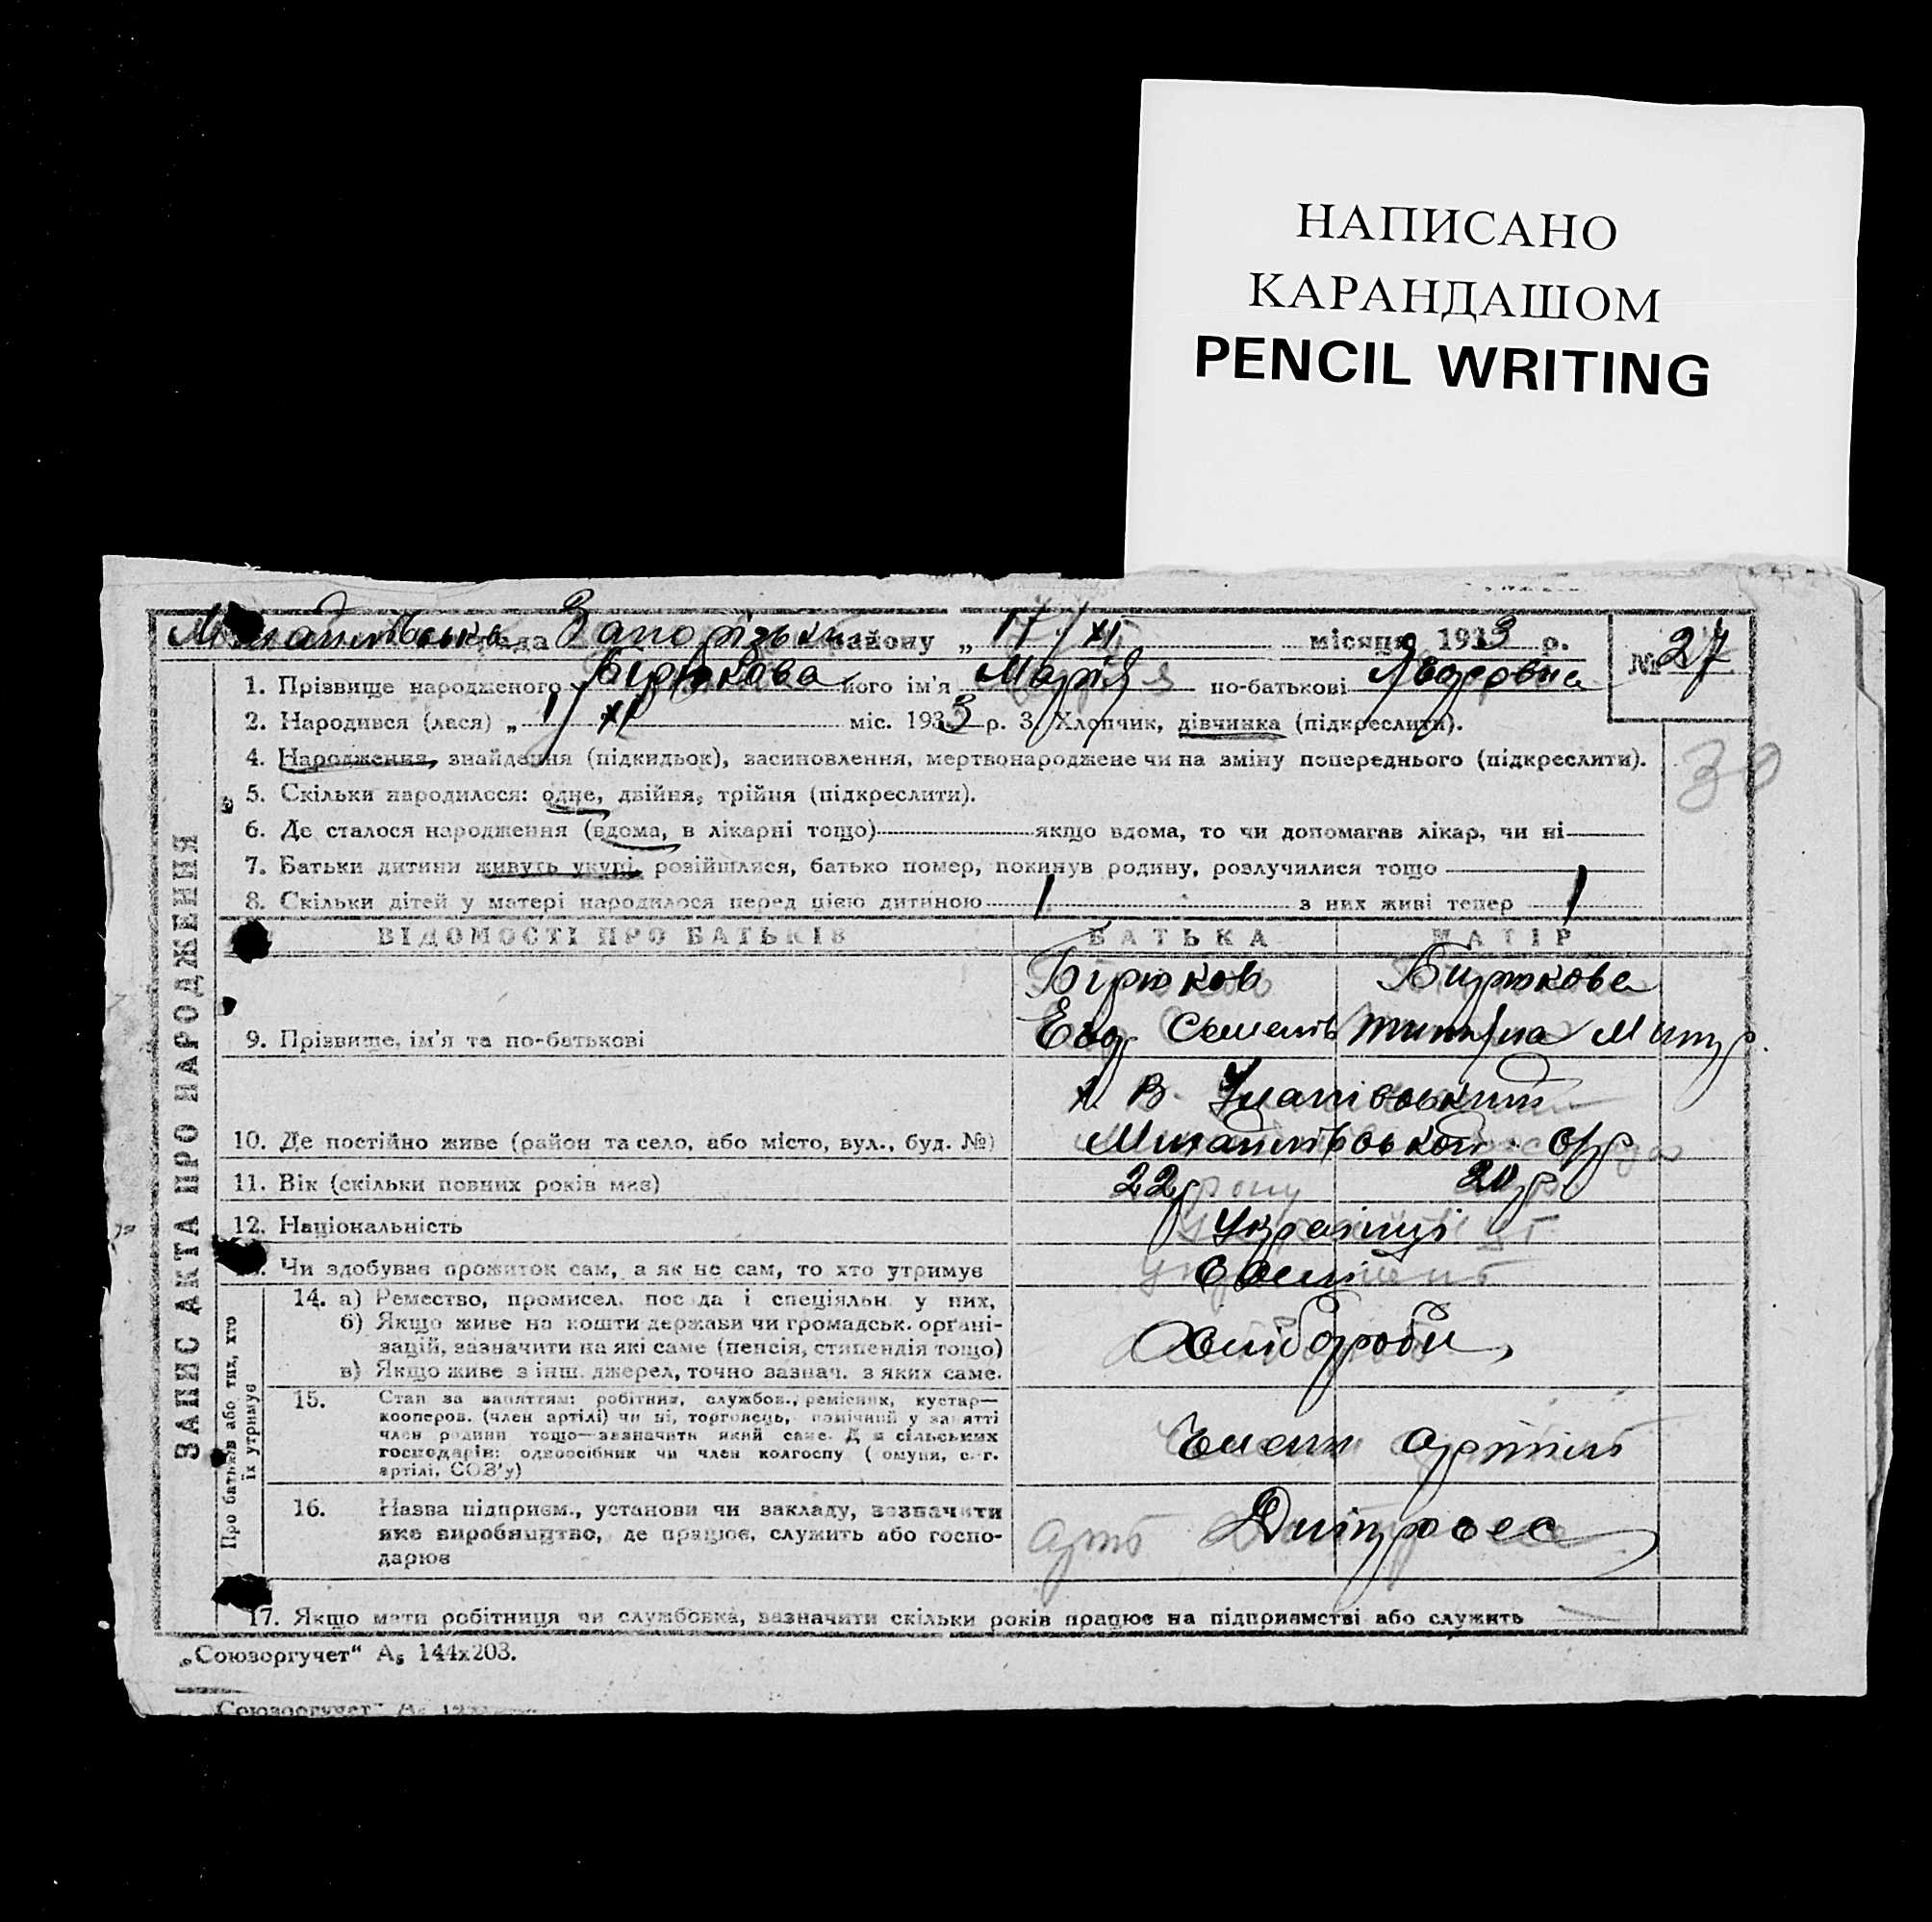 НАПИСАНО
КАРАНДАШОМ
PENCIL WRITING
рада Запорізьк району „ 17/XI місяця 1933 р.
№ 27
1. Прізвище народженого Бірюкова його ім'я Марія по-батькові
2. Народився (лася) „ 1/XI міс. 1933 р. 3. Хлопчик, дівчинка (підкреслити).
4. Народження, знайдення (підкидьок), засиновлення, мертвонароджене чи на зміну попереднього (підкреслити).
30
5. Скільки народилося: одне, двійня, трійня (підкреслити).
6. Де сталося народження (вдома, в лікарні тощо) якщо вдома, то чи допомагав лікар, чи ні
7. Батьки дитини живуть укупі, розійшлися, батько помер, покинув родину, розлучилися тощо
8. Скільки дітей у матері народилося перед цією дитиною 1 з них живі тепер 1
ЗАПИС АКТА ПРО НАРОДЖЕННЯ
ВІДОМОСТІ ПРО БАТЬКІВ БАТЬКА МАТІР
Бірюков Бирюкова
9. Прізвище, ім'я та по-батькові
х. В.
10. Де постійно живе (район та село, або місто, вул., буд. №) Михайлівськой
11. Вік (скільки повних років має) 22р 20р
12. Національність Українці
13. Чи здобуває прожиток сам, а як не сам, то хто утримує
Про батьків або тих, хто їх утримує
14. а) Ремество, промисел, посада і спеціяльн. у них,
б) Якщо живе на кошти держави чи громадськ. організацій, зазначити на які саме (пенсія, стипендія тощо)
в) Якщо живе з інш. джерел, точно зазнач. з яких саме.
Хліборобы
15. Стан за заняттям: робітник, службов., ремісник, кустар—
кооперов. (член артілі) чи ні, торговець, помічний у занятті
член родини тощо—зазначити який саме. Для сільських
господарів: одноосібник чи член колгоспу (комуни, с.-г.
артілі, СОЗ'у)
Члени артіли
16. Назва підприєм., установи чи закладу, зазначити
яке виробництво, де працює, служить або госпо-
дарює
Дніпроес
17. Якщо мати робітниця чи службовка, зазначити скільки років працює на підприємстві або служить
„Союзоргучет“ А₅ 144х203.